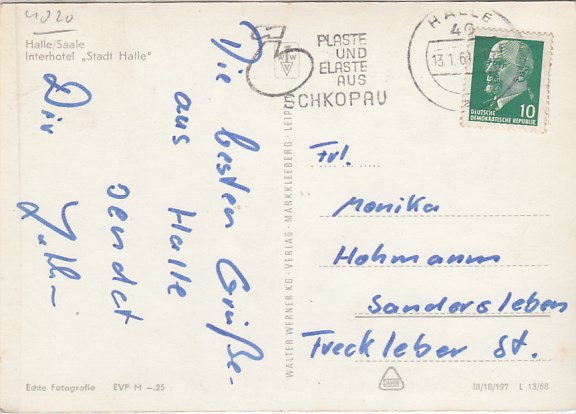 4020
Halle/Saale
Interhotel „Stadt Halle"
Die besten Grüße
aus Halle
sendet
Dir
PLASTE
UND
ELASTE
AUS
SCHKOPAU
HALLE
13.1.69
10
DEUTSCHE
DEMOKRATISCHE REPUBLIK
Frl.
Monika
Hohmann
Sandersleben
Freckleber St.
WALTER WERNER KG · VERLAG · MARKKLEEBERG · LEIPZIG
Echte Fotografie EVP M –.25
III/18/197 L 13/68